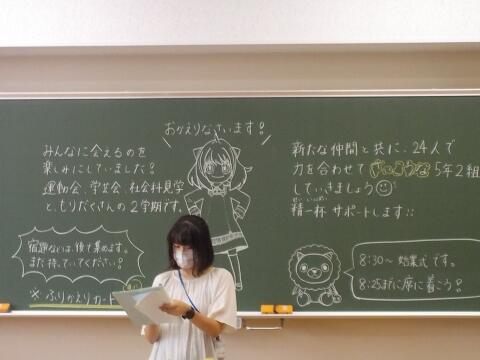 おかえりなさいます!
みんなに会えるのを
楽しみにしていました!
運動会、学芸会、社会科見学
と、もりだくさんの2学期です。
宿題などは、後で集めます。
まだ持っていてください!
※ ふりかえりカード
新たな仲間と共に、24人で
力を合わせて 5年2組
していきましょう
せい いっぱい
精一杯 サポートします!!
8:30~ 始業式です。
8:25までに席に着こう!